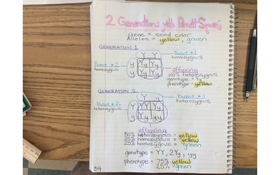 2 Generations with Punnett Squares
gene = seed color
Alleles = yellow, green
GENERATION 1
Y Y
Parent #1
homozygous
Parent #2
homozygous
y Yy Yy
y Yy Yy
offspring
100% heterozygous
GENERATION 2
Y y
Parent #1
heterozygous
Parent #2
heterozygous
Y YY Yy
y Yy yy
offspring
50% heterozygous = yellow
25% homozygous = yellow
25% homozygous = green
genotype = YY, 2Yy, 1yy
phenotype = 75% yellow
25% green